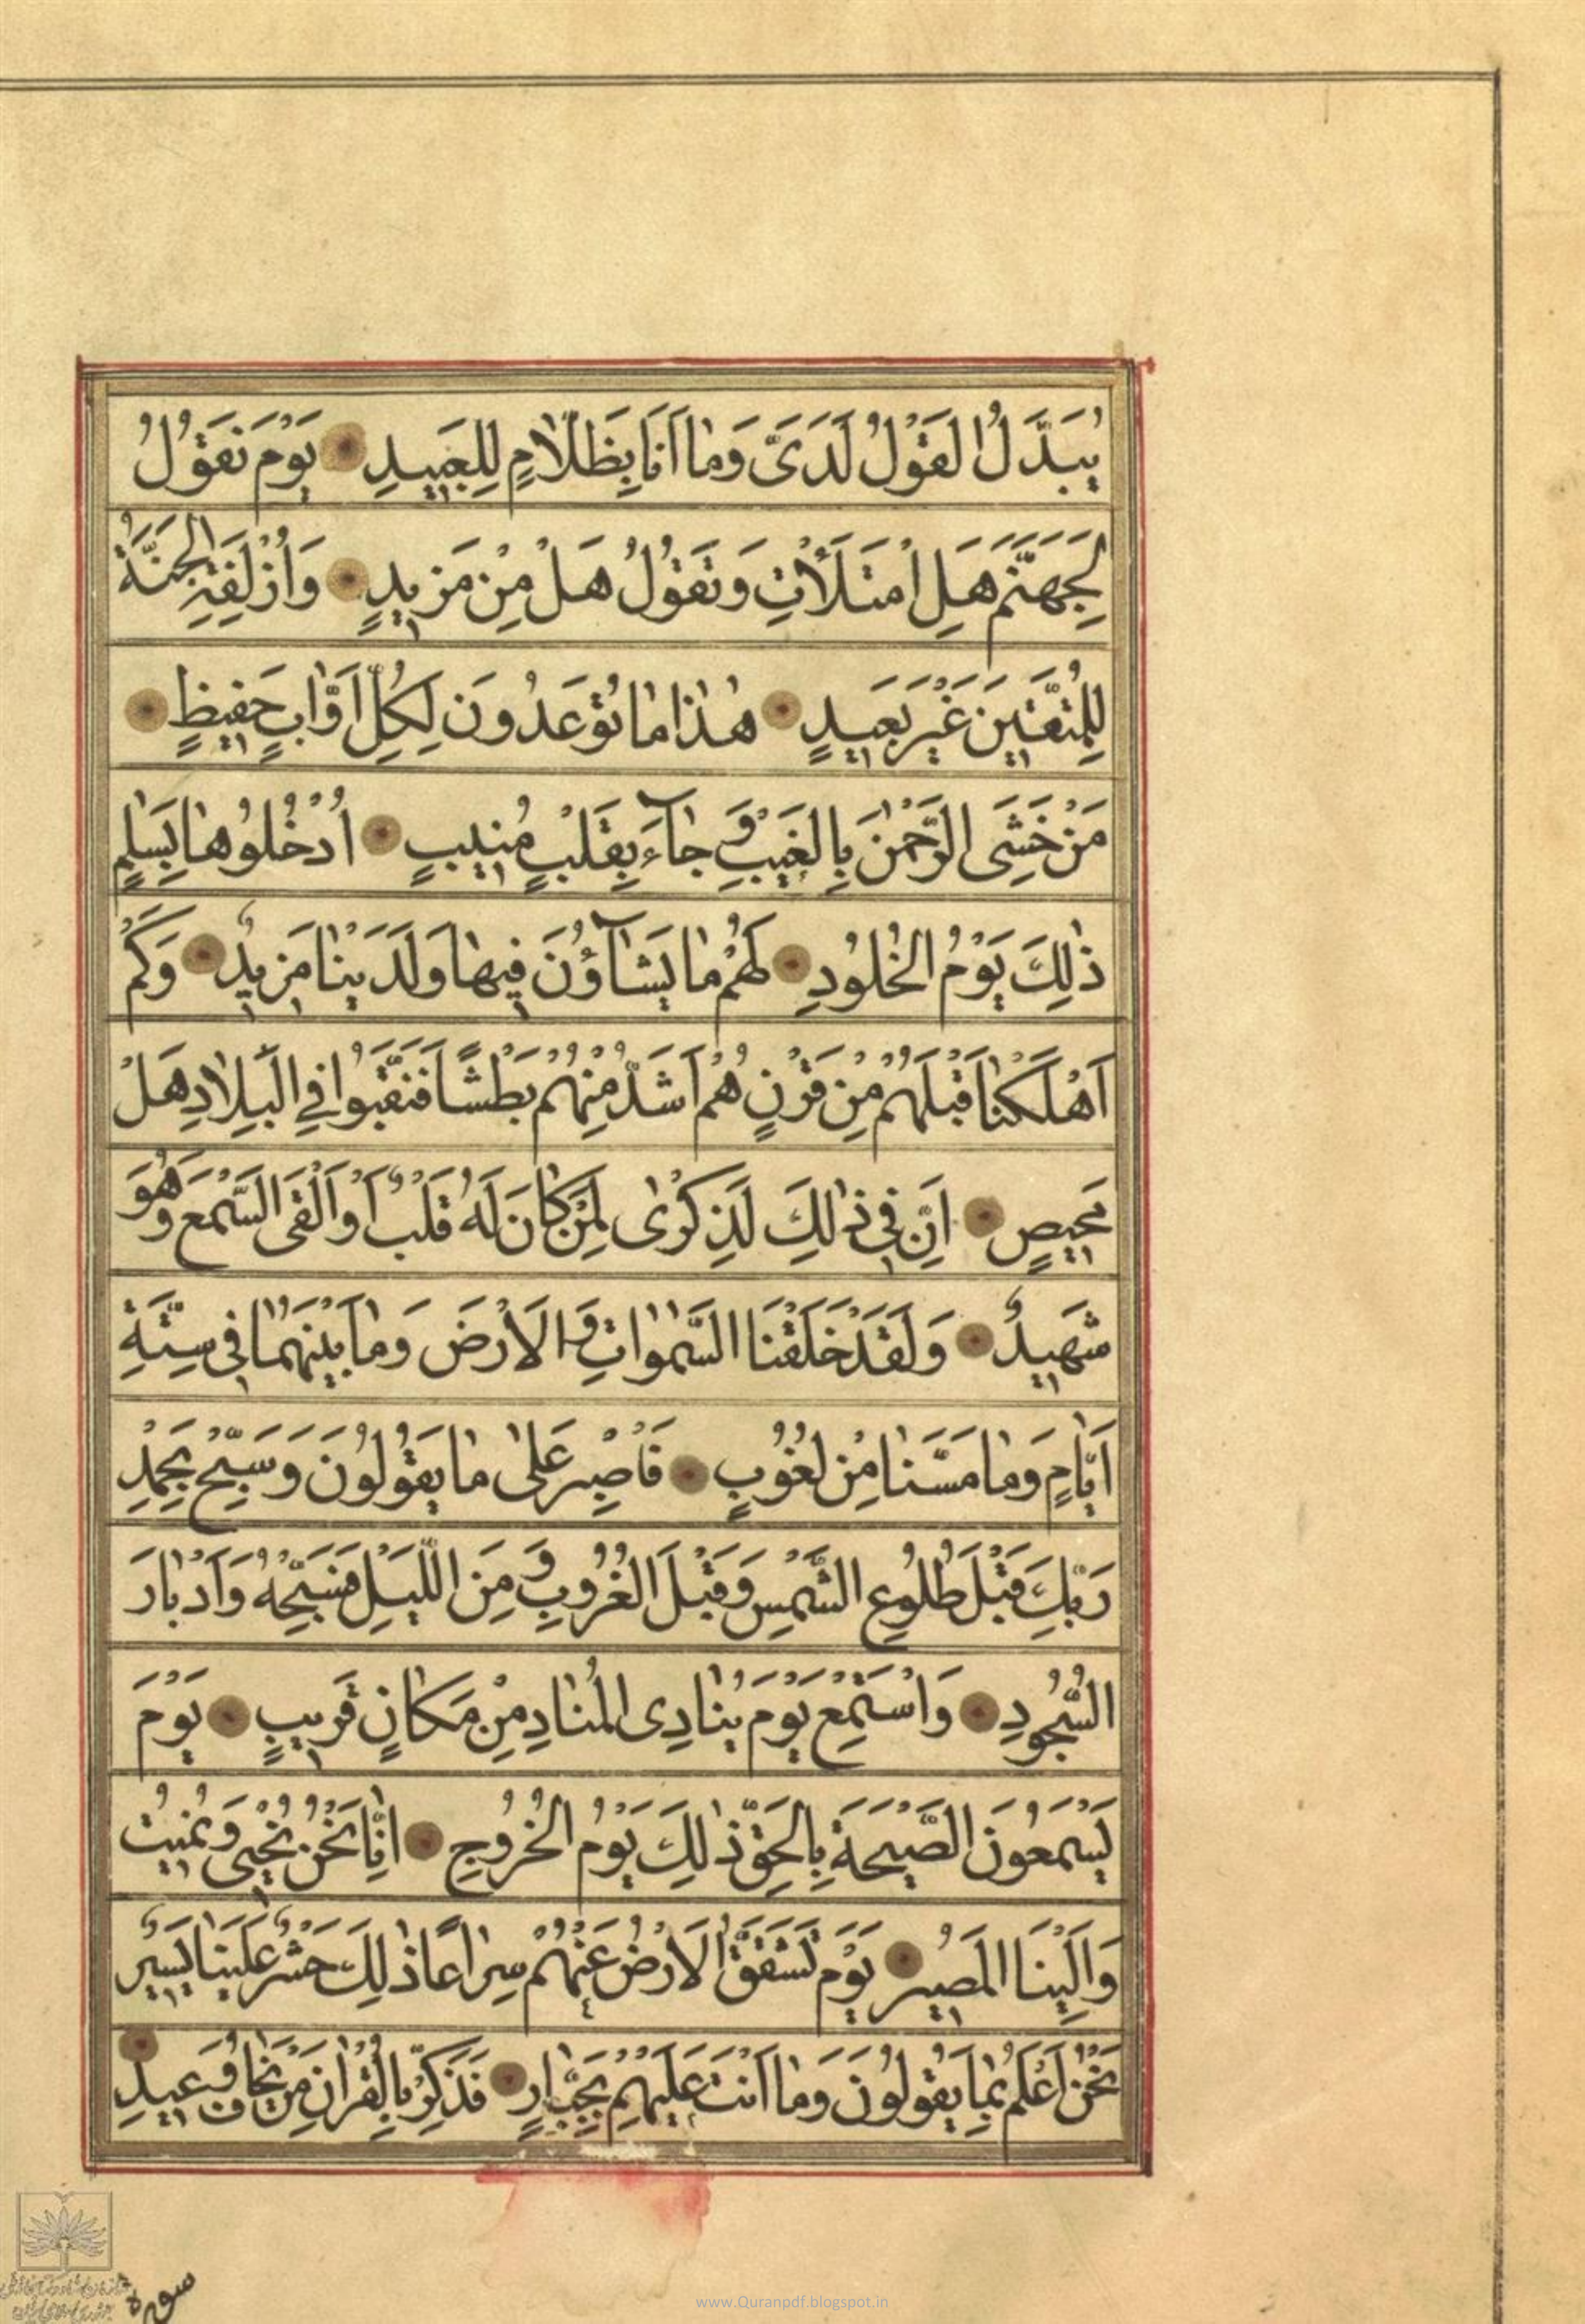 يُبَدَّلُ الْقَوْلُ لَدَىَّ وَمٰا اَنَا بِظَلّٰامٍ لِلْعَبيدِ يَوْمَ نَقُولُ
لِجَهَنَّمَ هَلِ امْتَلَأْتِ وَتَقُولُ هَلْ مِنْ مَزيدٍ وَاُزْلِفَتِ الْجَنَّةُ
لِلْمُتَّقينَ غَيْرَ بَعيدٍ هٰذٰا مٰا تُوعَدُونَ لِكُلِّ اَوّٰابٍ حَفيظٍ
مَنْ خَشِىَ الرَّحْمٰنَ بِالْغَيْبِ وَ جٰآءَ بِقَلْبٍ مُنيبٍ اُدْخُلُوهٰا بِسَلٰمٍ
ذٰلِكَ يَوْمُ الْخُلُودِ لَهُمْ مٰا يَشٰآؤُنَ فيهٰا وَلَدَيْنٰا مَزيدٌ وَكَمْ
اَهْلَكْنٰا قَبْلَهُمْ مِنْ قَرْنٍ هُمْ اَشَدُّ مِنْهُمْ بَطْشًا فَنَقَّبُوا فِي الْبِلٰادِ هَلْ
مَحيصٍ اِنَّ في ذٰلِكَ لَذِكْرٰى لِمَنْ كٰانَ لَهُ قَلْبٌ اَوْ اَلْقَى السَّمْعَ وَهُوَ
شَهيدٌ وَلَقَدْ خَلَقْنَا السَّمٰوٰاتِ وَ الْاَرْضَ وَمٰا بَيْنَهُمٰا في سِتَّةِ
اَيّٰامٍ وَمٰا مَسَّنٰا مِنْ لُغُوبٍ فَاصْبِرْ عَلىٰ مٰا يَقُولُونَ وَسَبِّحْ بِحَمْدِ
رَبِّكَ قَبْلَ طُلُوعِ الشَّمْسِ وَقَبْلَ الْغُرُوبِ وَ مِنَ اللَّيْلِ فَسَبِّحْهُ وَاَدْبٰارَ
السُّجُودِ وَاسْتَمِعْ يَوْمَ يُنٰادِى الْمُنٰادِ مِنْ مَكٰانٍ قَريبٍ يَوْمَ
يَسْمَعُونَ الصَّيْحَةَ بِالْحَقِّ ذٰلِكَ يَوْمُ الْخُرُوجِ اِنّٰا نَحْنُ نُحْيي وَنُميتُ
وَاِلَيْنَا الْمَصيرُ يَوْمَ تَشَقَّقُ الْاَرْضُ عَنْهُمْ سِرٰاعًا ذٰلِكَ حَشْرٌ عَلَيْنٰا يَسيرٌ
نَحْنُ اَعْلَمُ بِمٰا يَقُولُونَ وَمٰا اَنْتَ عَلَيْهِمْ بِجَبّٰارٍ فَذَكِّرْ بِالْقُرْاٰنِ مَنْ يَخٰافُ وَعيدِ
سورة
www.Quranpdf.blogspot.in